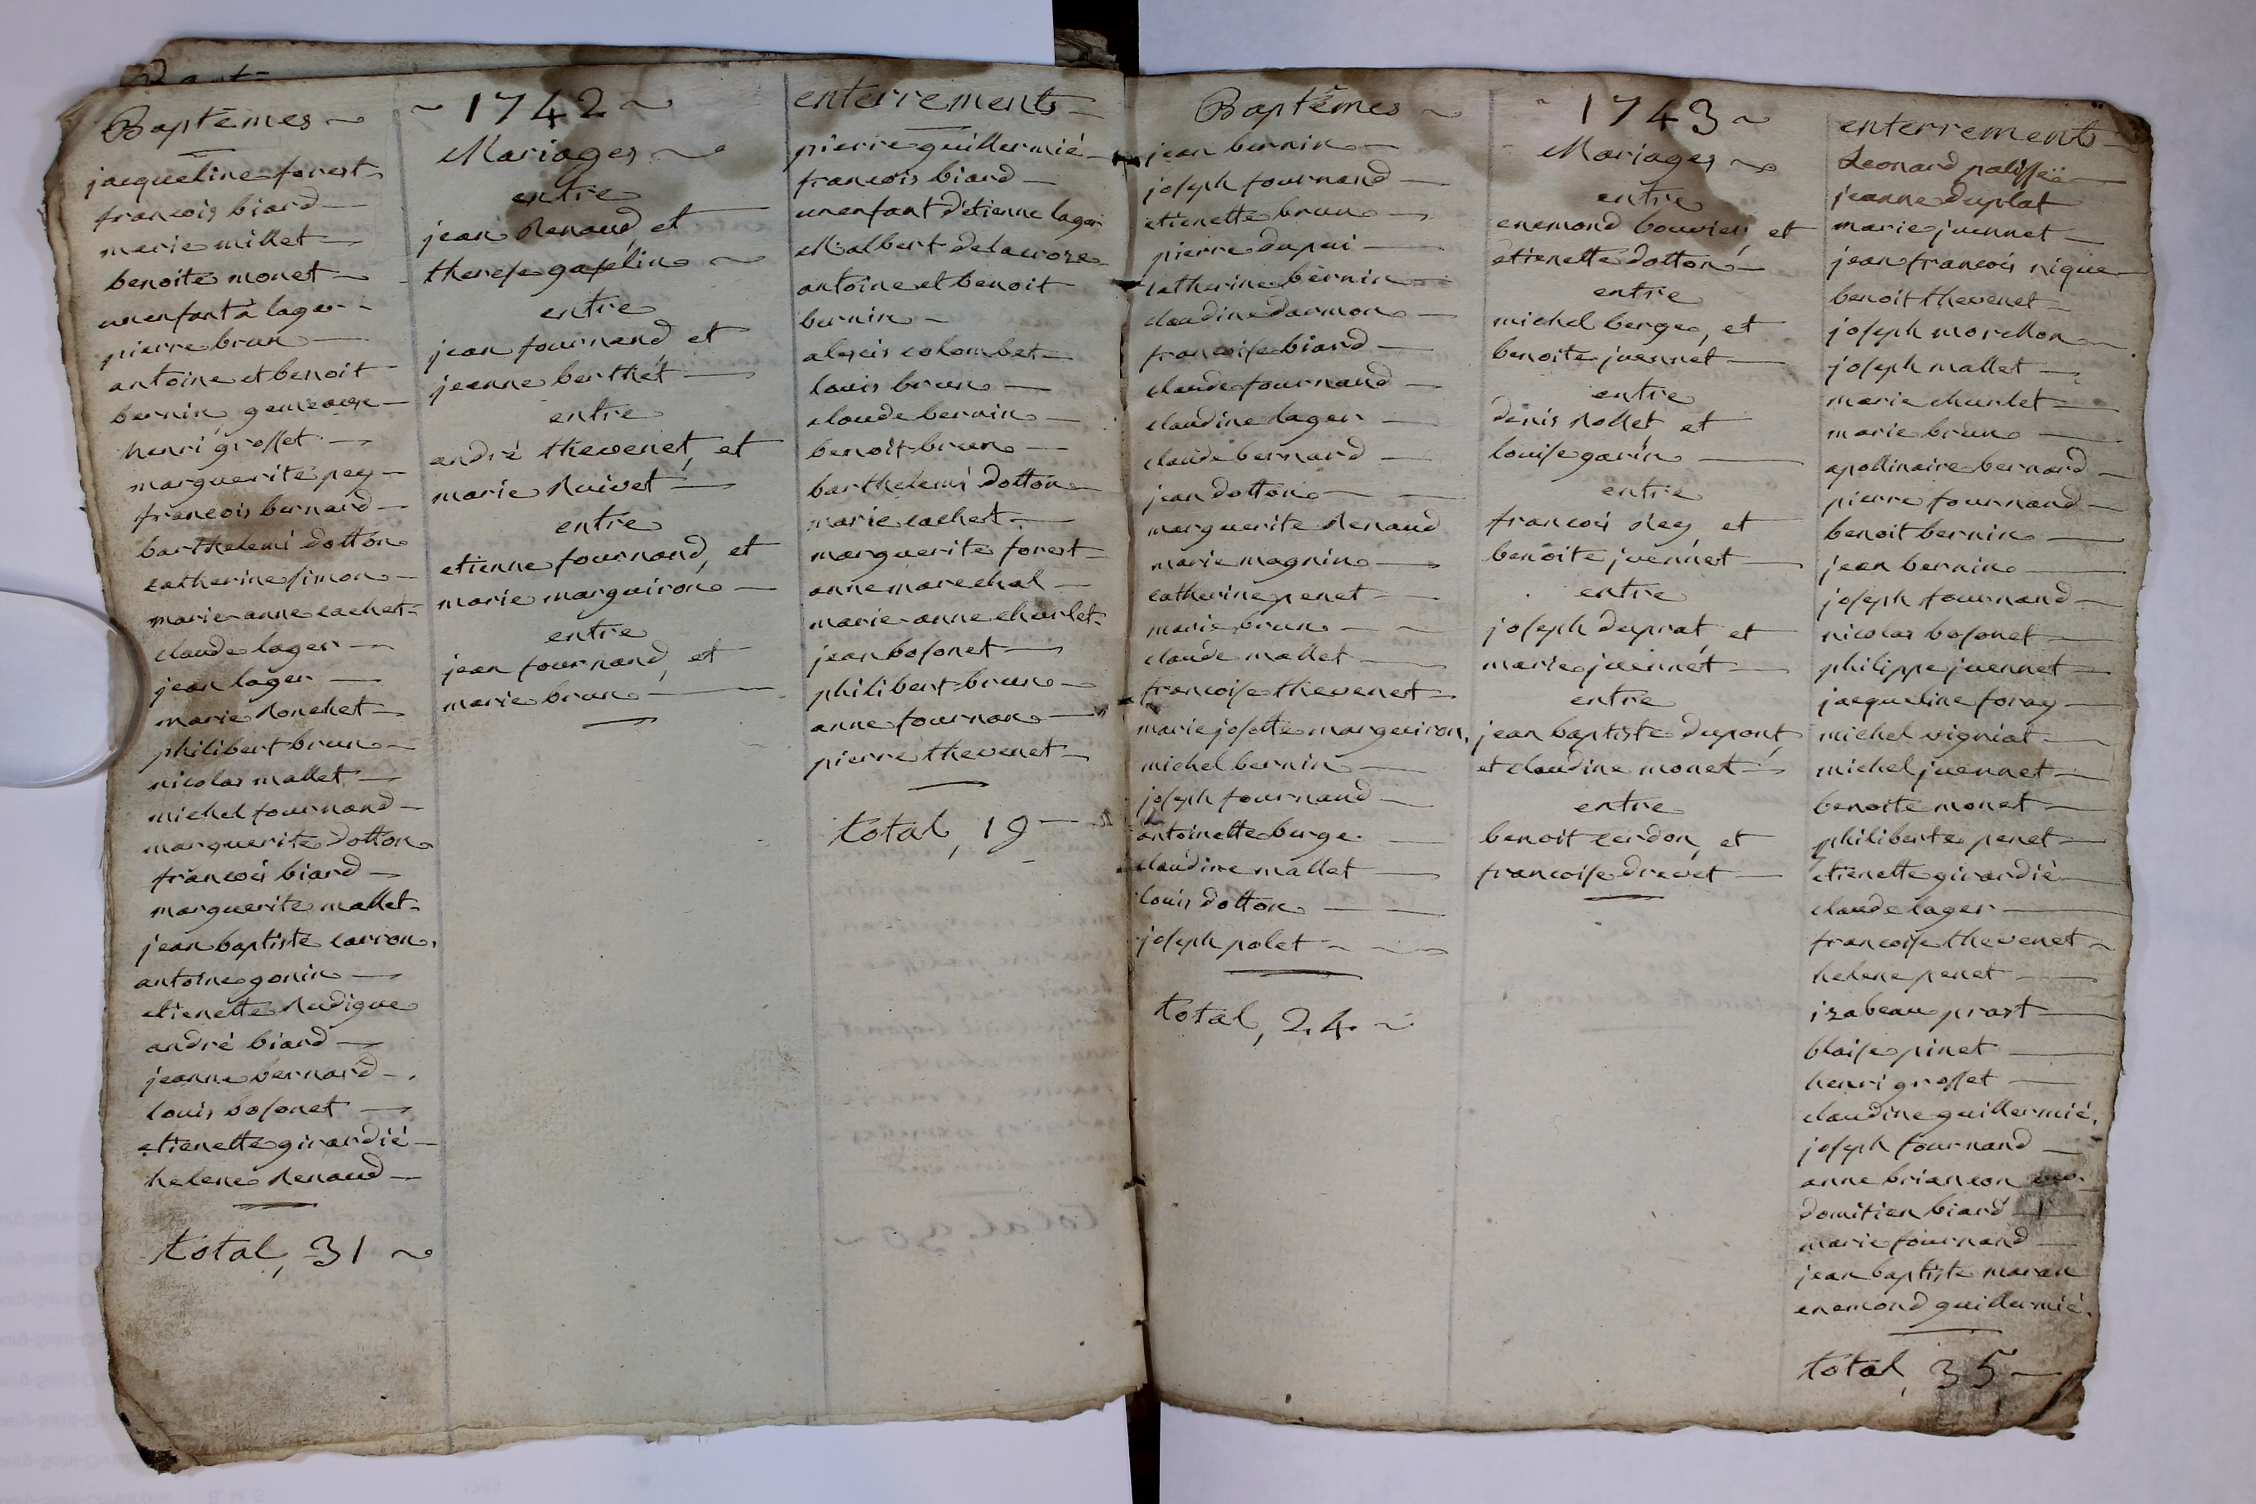 Baptêmes
jacqueline forest
francois biard
marie millet
benoite monet
un enfant a lager
pierre brun
antoine et benoit
bernin gemeaux
henri grosset
marguerite pey
francois bernard
barthelemi dotton
catherine simon
marie anne cachet
claude lager
jean lager
marie ronchet
philibert brun
nicolas mallet
michel fournand
marguerite dotton
francois biard
marguerite mallet
jean baptiste carron
antoine gonin
etienette rudigue
andré biard
jeanne bernard
louis bosonet
etienette girardié
helene renaud
total, 31
~ 1742 ~
Mariages
entre
jean renaud, et
therese gaselin
entre
jean fournand et
jeanne berthet
entre
andré thevenet, et
marie ruivet
entre
etienne fournand, et
marie marguiron
entre
jean fournand, et
marie brun
enterrements
pierre guillermié
francois biard
un enfant d'etienne lager
Mr albert delacroze
antoine et benoit
bernin
alexis colombet
louis brun
claude bernin
benoit brun
barthelemi dotton
marie cachet
marguerite forest
anne marechal
marie anne charlet
jean bosonet
philibert brun
anne fournon
pierre thevenet
total, 19
Baptêmes
jean bernin
joseph fournand
etienette brun
pierre dupui
catherine bernin
claudine darmon
francoise biard
claude fournand
claudine lager
claude bernard
jean dotton
marguerite renaud
marie magnin
catherine penet
marie brun
claude mallet
francoise thevenet
marie josette marguiron
michel bernin
joseph fournand
antoinette berge
claudine mallet
louis dotton
joseph polet
total, 24
~ 1743 ~
Mariages
entre
enemond bouvier, et
etienette dotton
entre
michel berge, et
benoite juennet
entre
denis rollet et
louise garin
entre
francois rey et
benoite juennet
entre
joseph duprat, et
marie juennet
entre
jean baptiste dupont,
et claudine monet
entre
benoit cerdon, et
francoise drevet
enterrements
Leonard palisse
jeanne duplat
marie juennet
jean francois nique
benoit thevenet
joseph morellon
joseph mallet
marie charlet
marie brun
apollinaire bernard
pierre fournand
benoit bernin
jean bernin
joseph fournand
nicolas bosonet
philippe juennet
jacqueline foray
michel vigniat
michel juennet
benoite monet
philiberte penet
etienette girardié
claude lager
francoise thevenet
helene penet
izabeau prost
blaise pinet
henri grosset
claudine guillermié
joseph fournand
anne briancon
domitien biard
marie fournand
jean baptiste maron
enemond guillermié
total, 35